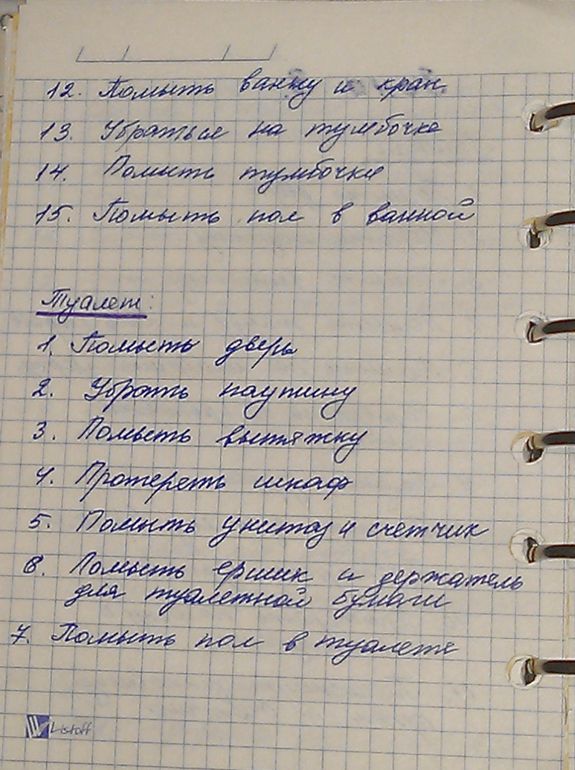 12. Помыть ванну и кран
13. Убраться на тумбочке
14. Помыть тумбочки
15. Помыть пол в ванной
Туалет:
1. Помыть дверь
2. Убрать паутину
3. Помыть вытяжку
4. Протереть шкаф
5. Помыть унитаз и счетчик
6. Помыть ершик и держатель
для туалетной бумаги
7. Помыть пол в туалете
Listoff